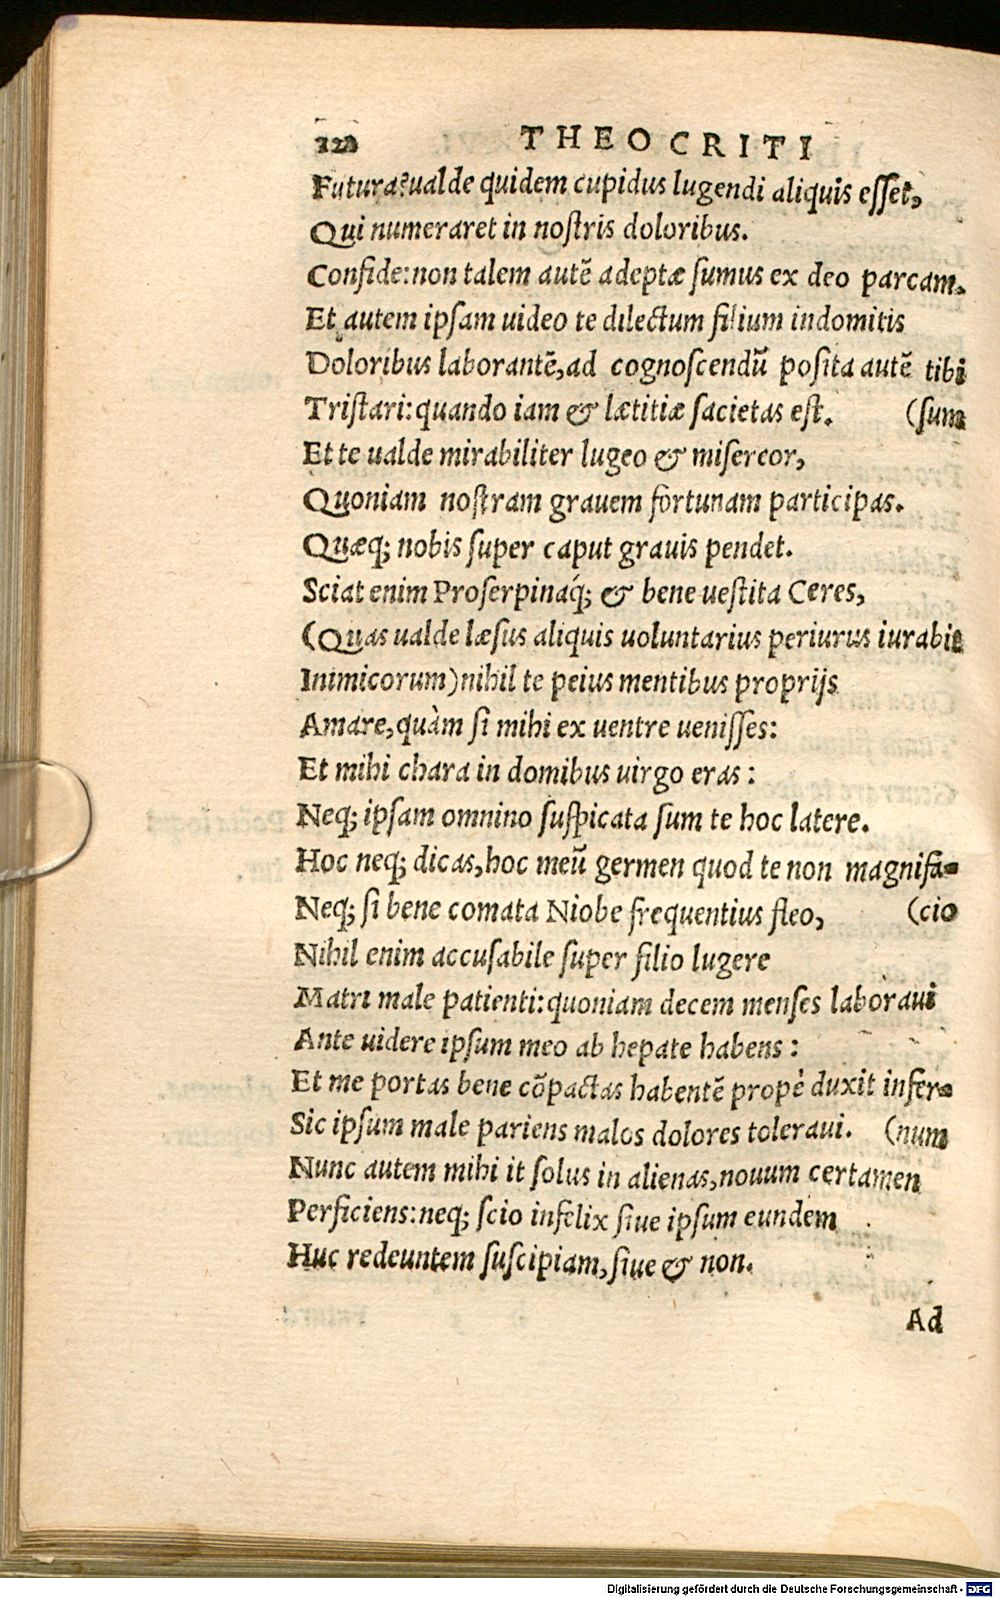 122 THEOCRITI
Futura?ualde quidem cupidus lugendi aliquis eſſet,
Qui numeraret in noſtris doloribus.
Confide:non talem autē adeptæ ſumus ex deo parcam.
Et autem ipſam uideo te dilectum filium indomitis
Doloribus laborantē,ad cognoſcendū poſita autē tibi
Triſtari:quando iam & lætitiæ ſacietas eſt. (ſum
Et te ualde mirabiliter lugeo & miſereor,
Quoniam noſtram grauem fortunam participas.
Quæq; nobis ſuper caput grauis pendet.
Sciat enim Proſerpinaq́; & bene ueſtita Ceres,
(Quas ualde læſus aliquis uoluntarius periurus iurabit
Inimicorum)nihil te peius mentibus proprijs
Amare,quàm ſi mihi ex uentre ueniſſes:
Et mihi chara in domibus uirgo eras :
Neq; ipſam omnino ſuſpicata ſum te hoc latere.
Hoc neq; dicas,hoc meū germen quod te non magnifa-
Neq; ſi bene comata Niobe frequentius fleo, (cio
Nihil enim accuſabile ſuper filio lugere
Matri male patienti:quoniam decem menſes laboraui
Ante uidere ipſum meo ab hepate habens :
Et me portas bene cōpactas habentē propè duxit infer-
Sic ipſum male pariens malos dolores toleraui. (num
Nunc autem mihi it ſolus in alienas,nouum certamen
Perficiens:neq; ſcio infelix ſiue ipſum eundem
Huc redeuntem ſuſcipiam,ſiue & non.
Ad
Digitalisierung gefördert durch die Deutsche Forschungsgemeinschaft - DFG